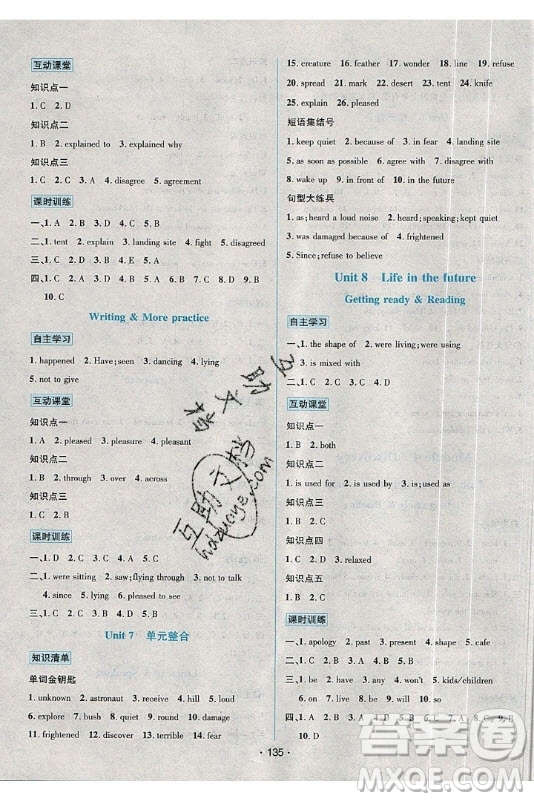 互动课堂
知识点一
1. C  2. D
知识点二
1. B  2. explained to  3. explained why
知识点三
1. C  2. C  3. A  4. disagree  5. agreement
课时训练
一、1. A  2. D  3. A  4. C  5. B
二、1. tent  2. explain  3. landing site  4. fight  5. disagreed
三、1. B  2. C  3. D  4. A  5. C
四、1. C  2. D  3. B  4. A  5. A  6. C  7. A  8. D  9. B
10. C
Writing & More practice
自主学习
1. happened  2. Have; seen  3. dancing  4. lying
5. not to give
互动课堂
知识点一
1. A  2. pleased  3. pleasure  4. pleasant
知识点二
1. B  2. through  3. over  4. across
知识点三
1. B  2. B
课时训练
一、1. D  2. C  3. A  4. C  5. A
二、1. were sitting  2. saw; flying through  3. not to talk
4. was lying  5. pleased to see
三、1. C  2. B  3. B  4. A  5. B
Unit 7  单元整合
知识清单
单词金钥匙
1. unknown  2. astronaut  3. receive  4. hill  5. loud
6. explore  7. bush  8. quiet  9. movement  10. damage
11. frightened  12. discover  13. terrible  14. fear
15. creature  16. feather  17. wonder  18. line  19. refuse
20. spread  21. mark  22. desert  23. tent  24. knife
25. explain  26. pleased
短语集结号
1. keep quiet  2. because of  3. in fear  4. landing site
5. as soon as possible  6. agree with  7. disagree with
8. wake up  9. in front of  10. in the future
句型大练兵
1. as; heard a loud noise  2. heard; speaking; kept quiet
3. was damaged because of  4. frightened
5. Since; refuse to believe
Unit 8  Life in the future
Getting ready & Reading
自主学习
一、1. the shape of  2. were living; were using
3. is mixed with
二、1. C  2. C  3. A  4. B
互动课堂
知识点一
1. B  2. both
知识点二
1. is used for  2. is used by  3. C  4. used as
知识点三
1. D  2. A
知识点四
1. C  2. D  3. C  4. relaxed
知识点五
1. C  2. B
课时训练
一、1. apology  2. past  3. anyway  4. shape  5. cafe
二、1. C  2. B  3. A  4. D  5. B
三、1. as  2. hard  3. any  4. won't  5. kids/children
6. live  7. be  8. will  9. to  10. so
四、1. B  2. A  3. B  4. C  5. A  6. C  7. D  8. D  9. B
10. D
· 135 ·
互助文档
互助文档
hdzuoye.com
答案圈
MXQE.COM